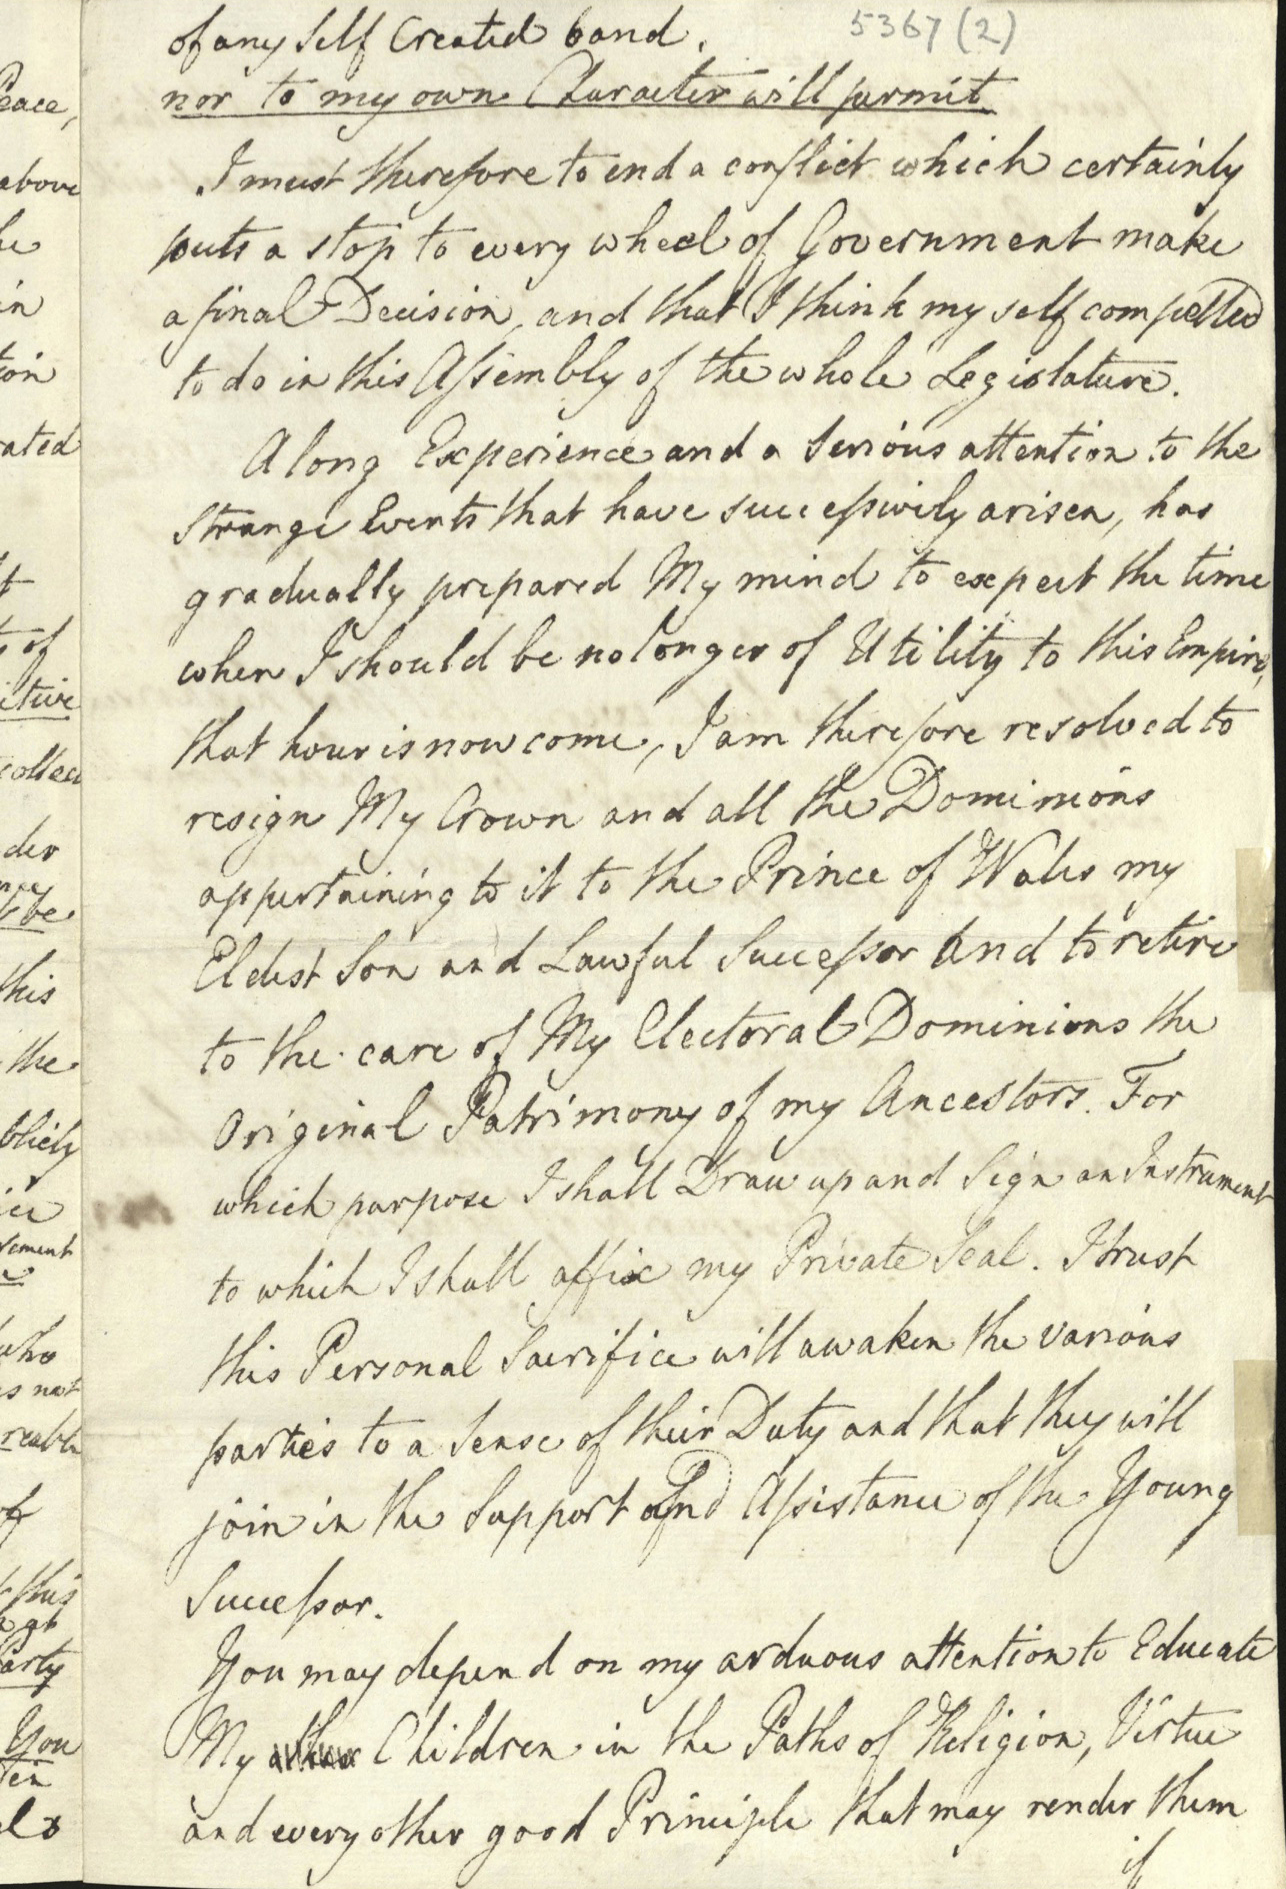 5367 (2)
of any self Created band.
nor to my own Character will permit
I must therefore to end a conflict which certainly
puts a stop to every wheel of Government make
a final Decision, and that I think myself compelled
to do in this Assembly of the whole Legislature.
A long Experience and a serious attention to the
Strange Events that have successively arisen, has
gradually prepared My mind to expect the time
when I should be no longer of Utility to this Empire,
that hour is now come, I am therefore resolved to
resign My Crown and all the Dominions
appertaining to it to the Prince of Wales my
Eldest Son and Lawful Successor And to retire
to the care of My Electoral Dominions the
Original Patrimony of my Ancestors. For
which purpose I shall Draw up and Sign an Instrument
to which I shall affix my Private Seal. I trust
this Personal Sacrifice will awaken the various
parties to a Sense of their Duty and that they will
join in the Support and Assistance of the Young
Successor.
You may depend on my arduous attention to Educate
My other Children in the Paths of Religion, Virtue
and every other good Principle that may render them
if
Peace,
above
in
rated
of
der
this
the
who
is not
of
this
Party
You